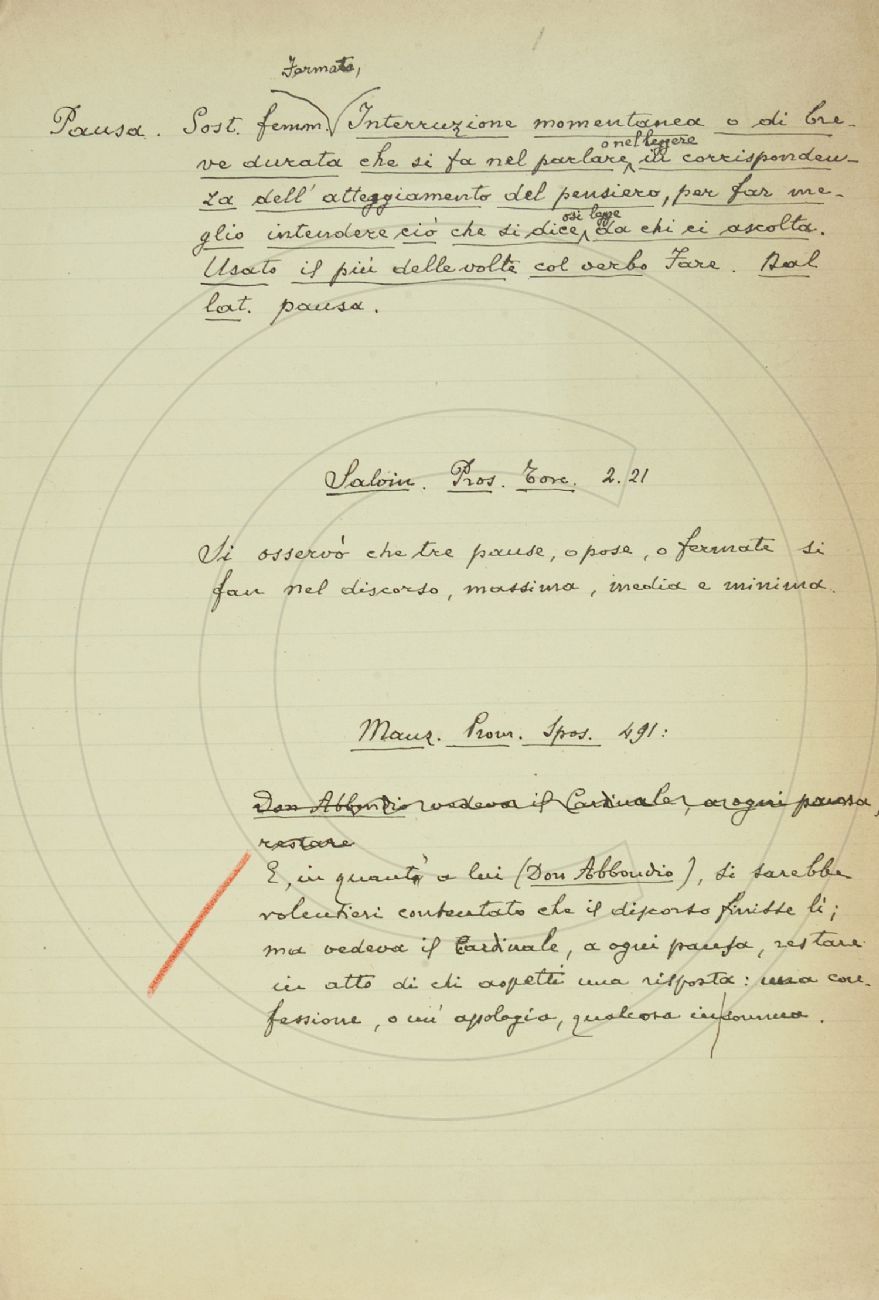 Fermata,
Pausa. Sost. femm. Interruzione momentanea o di bre-
o nel leggere
ve durata che si fa nel parlare, in corrisponden-
za dell' atteggiamento del pensiero, per far me-
o si legge
glio intendere ciò che si dice, da chi ci ascolta.
Usato il più delle volte col verbo Fare. Dal
lat. pausa.
Salvin. Pros. Tosc. 2.21
Si osservò che tre pause, o pose, o fermate si
fan nel discorso, massima, media e minima.
Manz. Prom. Spos. 491:
Don Abbondio vedeva il Cardinale, a ogni pausa,
restare
E, in quanto a lui (Don Abbondio), si sarebbe
volentieri contentato che il discorso finisse lì;
ma vedeva il Cardinale, a ogni pausa, restare
in atto di chi aspetti una risposta: una con-
fessione, o un' apologia, qualcosa insomma.